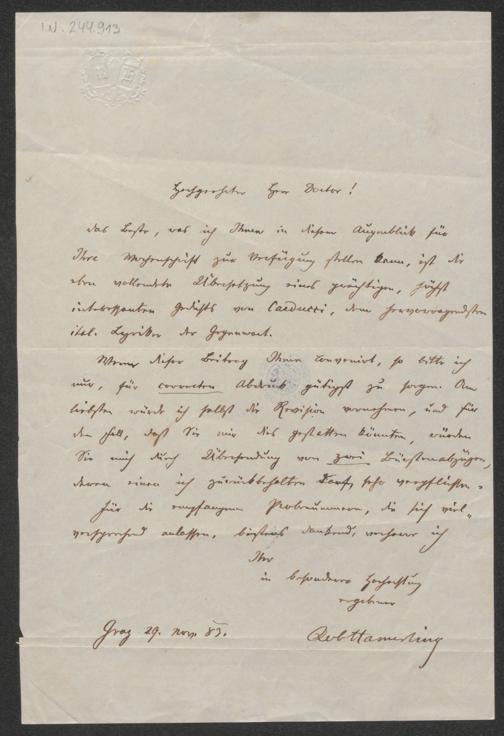 I.N. 244.913
Hochgeehrter Herr Doctor!
das Beste, was ich Ihnen in diesem Augenblick für
Ihre Wochenschrift zur Verfügung stellen kann, ist die
eben vollendete Übersetzung eines prächtigen, höchst
interessanten Gedichts von Carducci, dem hervorragendsten
ital. Lyriker der Gegenwart.
Wenn dieser Beitrag Ihnen convenirt, so bitte ich
nur, für correcten Abdruck gütigst zu sorgen. Am
liebsten würde ich selbst die Revision vornehmen, und für
den Fall, daß Sie mir dies gestatten könnten, würden
Sie mich durch Übersendung von zwei Bürstenabzügen,
deren einen ich zurückbehalten darf, sehr verpflichten.
Für die empfangenen Probenummern, die sich viel-
versprechend anlassen, bestens dankend, verharre ich
Ihr
in besonderer Hochachtung
ergebener
Graz 29. Nov.
Rob Hamerling